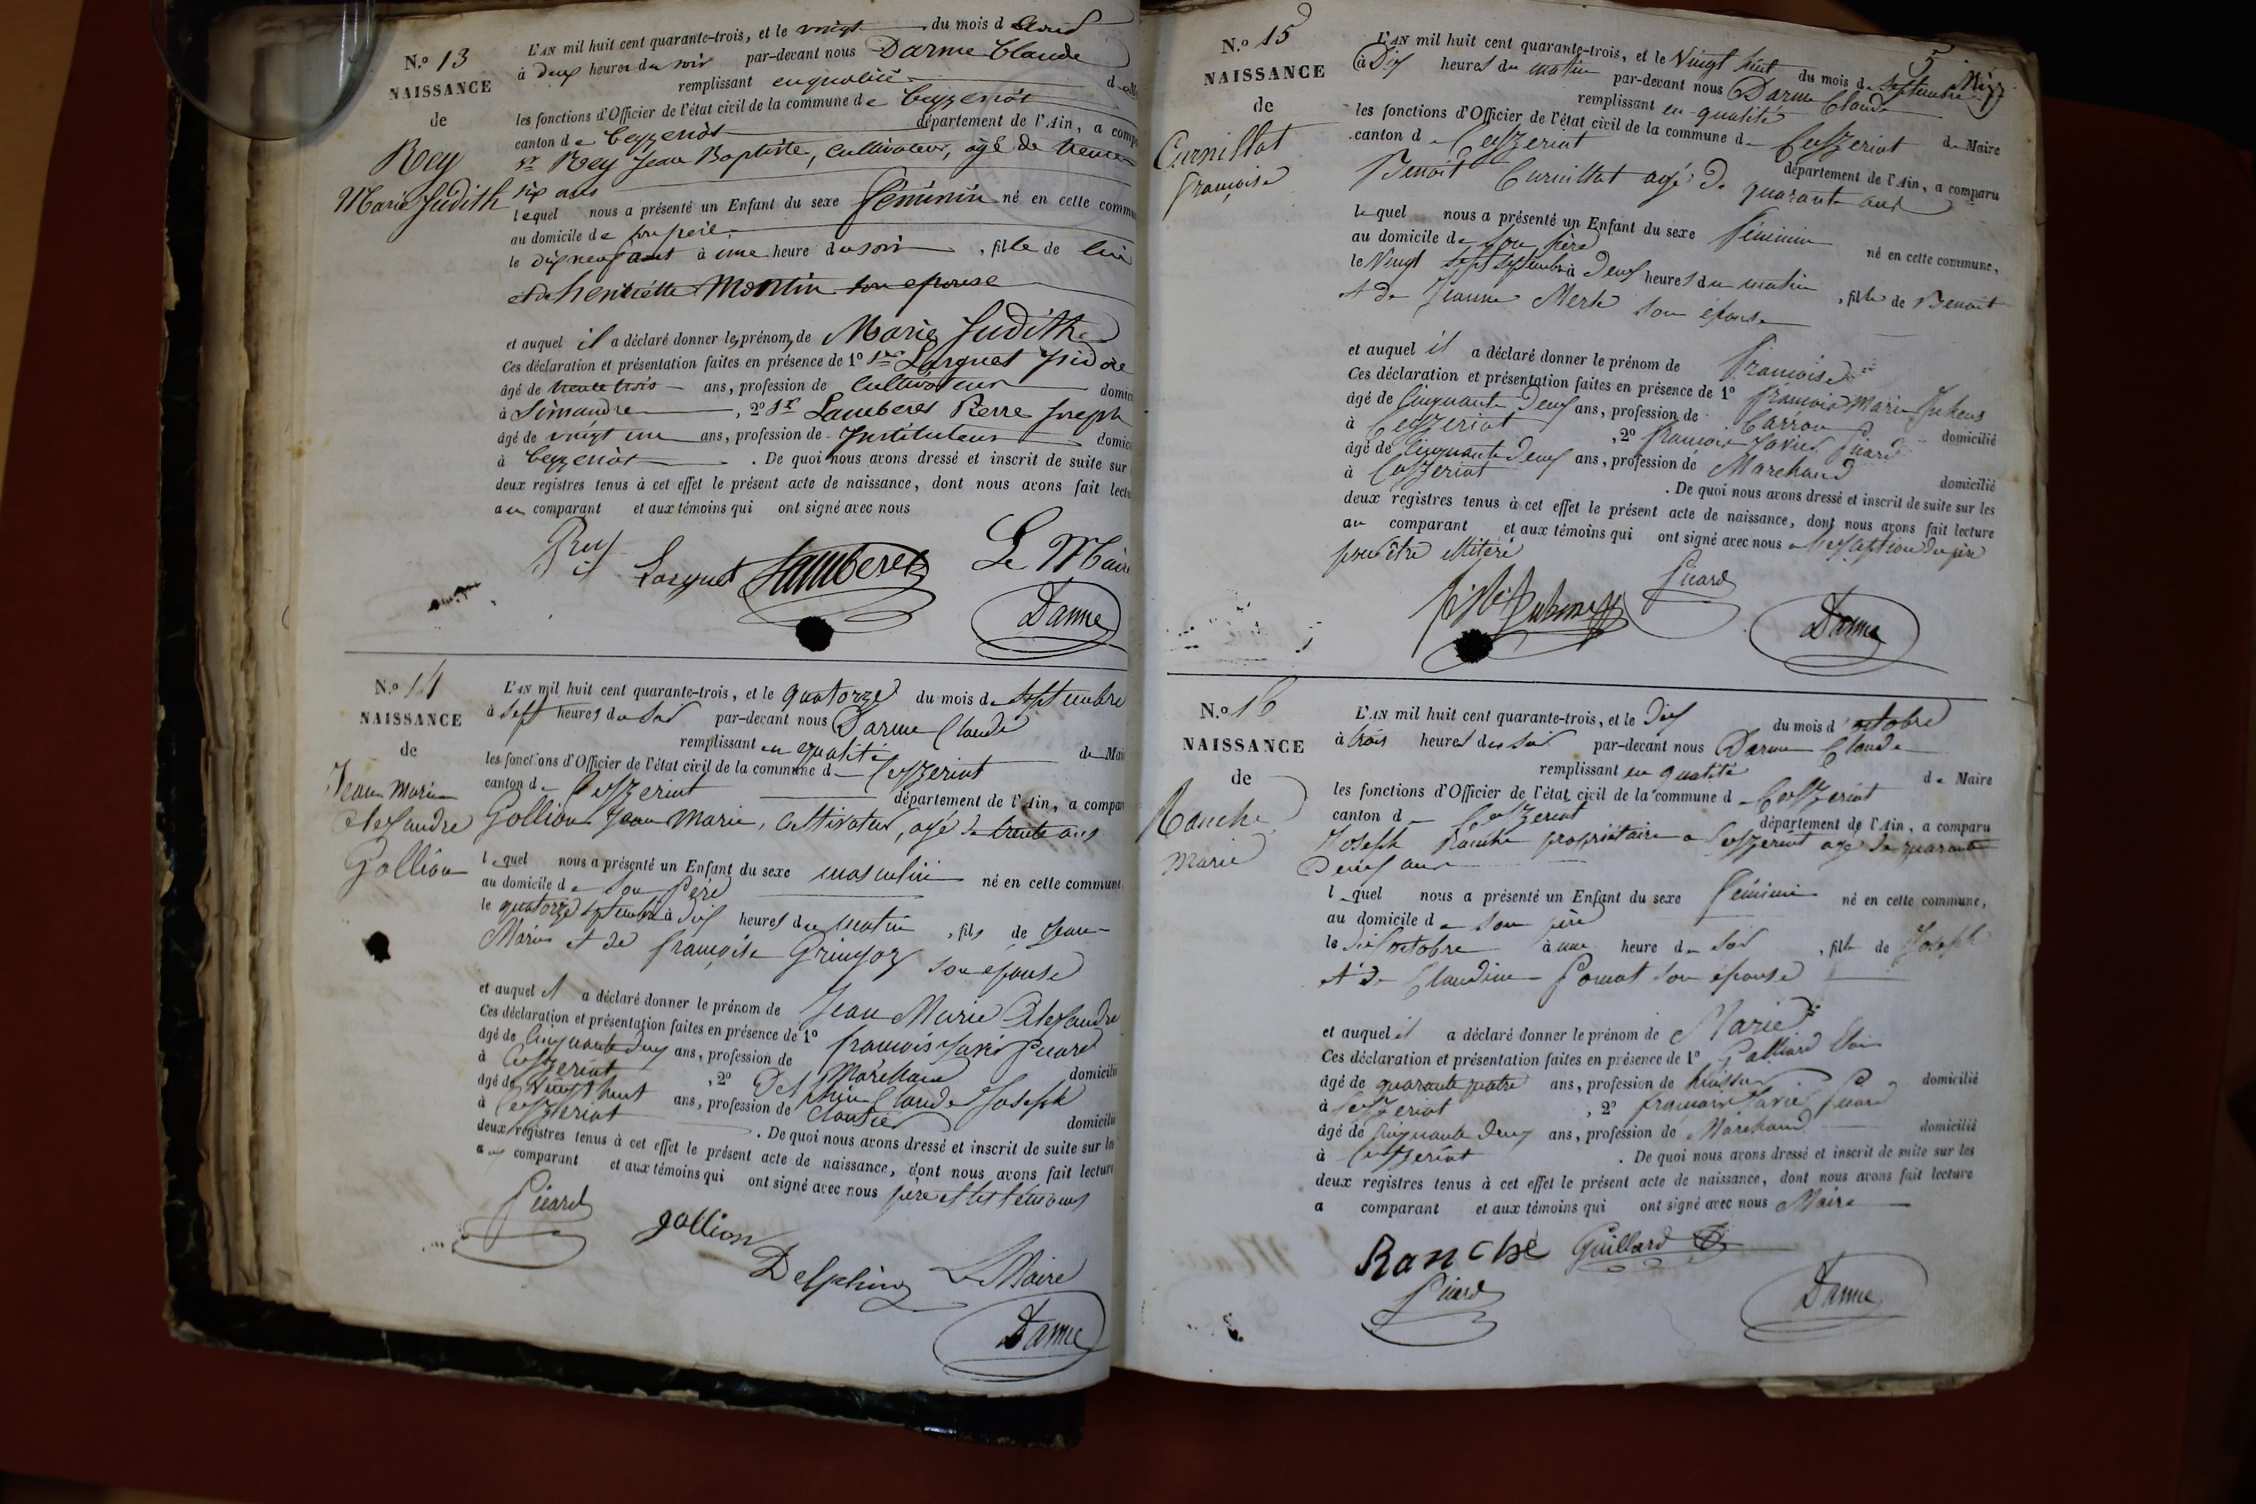 N.º 13
NAISSANCE
de
Rey
Marie Judith
L'AN mil huit cent quarante-trois, et le vingt du mois d
à deux heures du soir par-devant nous Darme Claude
remplissant en qualité d
les fonctions d'Officier de l'état civil de la commune de Ceyzeriat
canton de Ceyzeriat département de l'Ain, a
sr Rey Jean Baptiste, Cultivateur, âgé de trente
six ans
lequel nous a présenté un Enfant du sexe féminin né en cette
au domicile de son père
le dix neuf août à une heure du soir, fille de lui
et de henriette Montin son épouse
et auquel il a déclaré donner les prénoms de Marie Judith
Ces déclaration et présentation faites en présence de 1º sr Larguet Isidore
âgé de trente trois ans, profession de Cultivateur
à Simandre, 2º sr Lamberet Pierre Joseph
âgé de vingt un ans, profession de Instituteur
à Ceyzeriat. De quoi nous avons dressé et inscrit de suite sur
deux registres tenus à cet effet le présent acte de naissance, dont nous avons fait
au comparant et aux témoins qui ont signé avec nous
Rey Larguet Lamberet Le Maire
Darme
N.º 14
NAISSANCE
de
Jean Marie
Alexandre
Gollion
L'AN mil huit cent quarante-trois, et le quatorze du mois de septembre
à sept heures du soir par-devant nous Darme Claude
remplissant en qualité de
les fonctions d'Officier de l'état civil de la commune de Ceyzeriat
canton de Ceyzeriat département de l'Ain, a
Gollion Jean Marie, Cultivateur, âgé de trente ans
lequel nous a présenté un Enfant du sexe masculin né en cette commune
au domicile de son Père
le quatorze septembre à dix heures du matin, fils de Jean
Marie et de françoise Gringoz son épouse
et auquel il a déclaré donner le prénom de Jean Marie Alexandre
Ces déclaration et présentation faites en présence de 1º francois Xavier Picard
âgé de Cinquante deux ans, profession de Marchand
à Ceyzeriat, 2º Delphin Claude Joseph
âgé de vingt huit ans, profession de
à Ceyzeriat. De quoi nous avons dressé et inscrit de suite sur les
deux registres tenus à cet effet le présent acte de naissance, dont nous avons fait lecture
au comparant et aux témoins qui ont signé avec nous père et les témoins
Picard gollion
Delphin Le Maire
Darme
5
N.º 15
NAISSANCE
de
Curnillat
françoise
L'AN mil huit cent quarante-trois, et le Vingt huit du mois de septembre
à Dix heures du matin par-devant nous Darme Claude
remplissant en qualité de Maire
les fonctions d'Officier de l'état civil de la commune de Ceyzeriat
canton de Ceyzeriat département de l'Ain, a comparu
Benoit Curnillat agé de quarante ans
lequel nous a présenté un Enfant du sexe féminin né en cette commune,
au domicile de son père
le Vingt sept septembre à Deux heures du matin, fille de Benoit
et de Jeanne Merle son épouse
et auquel il a déclaré donner le prénom de françoise
Ces déclaration et présentation faites en présence de 1º françois Marie
âgé de Cinquante Deux ans, profession de domicilié
à Ceyzeriat, 2º francois Xavier Picard
âgé de Cinquante Deux ans, profession de Marchand domicilié
à Ceyzeriat. De quoi nous avons dressé et inscrit de suite sur les
deux registres tenus à cet effet le présent acte de naissance, dont nous avons fait lecture
au comparant et aux témoins qui ont signé avec nous a l'exception du père
pour être illitéré
Picard
Darme
N.º 16
NAISSANCE
de
Ranche
Marie
L'AN mil huit cent quarante-trois, et le Dix du mois d'octobre
à trois heures du soir par-devant nous Darme Claude
remplissant en qualité de Maire
les fonctions d'Officier de l'état civil de la commune de Ceyzeriat
canton de Ceyzeriat département de l'Ain, a comparu
Joseph Ranche propriétaire a Ceyzeriat agé de quarante
Deux ans
lequel nous a présenté un Enfant du sexe féminin né en cette commune,
au domicile de son père
le dix octobre à une heure du soir, fille de Joseph
et de Claudine son épouse
et auquel il a déclaré donner le prénom de Marie
Ces déclaration et présentation faites en présence de 1º Galliard
âgé de quarante quatre ans, profession de huissier domicilié
à Ceyzeriat, 2º francois Xavier Picard
âgé de Cinquante Deux ans, profession de Marchand domicilié
à Ceyzeriat. De quoi nous avons dressé et inscrit de suite sur les
deux registres tenus à cet effet le présent acte de naissance, dont nous avons fait lecture
a comparant et aux témoins qui ont signé avec nous Maire
Ranche Gaillard
Picard Darme